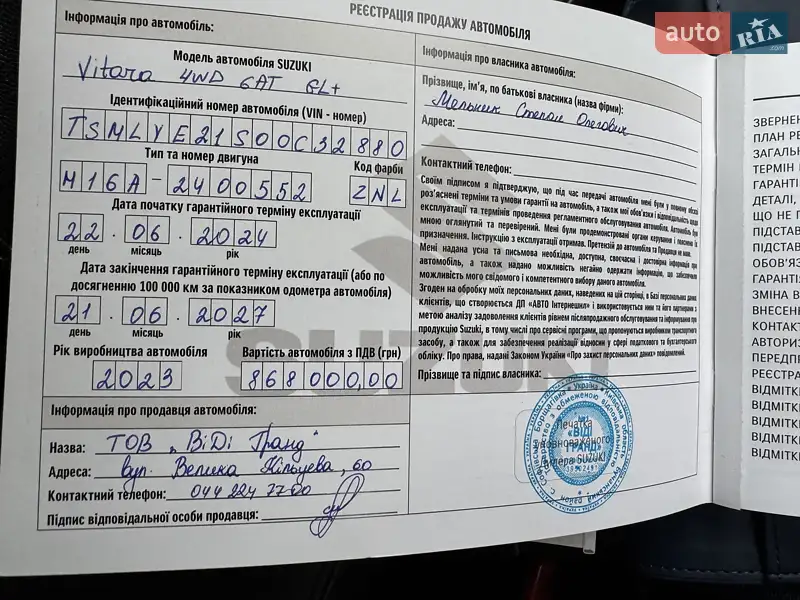 РЕЄСТРАЦІЯ ПРОДАЖУ АВТОМОБІЛЯ
auto RIA .com
Інформація про автомобіль:
Модель автомобіля SUZUKI
Vitara 4WD 6AT GL+
Ідентифікаційний номер автомобіля (VIN - номер)
TSMLYE21S00C32880
Тип та номер двигуна
Код фарби
M16A - 2400552
ZNL
Дата початку гарантійного терміну експлуатації
22 . 06 . 2024
день місяць рік
Дата закінчення гарантійного терміну експлуатації (або по
досягненню 100 000 км за показником одометра автомобіля)
21 . 06 . 2027
день місяць рік
Рік виробництва автомобіля
Вартість автомобіля з ПДВ (грн)
2023
868000,00
Інформація про продавця автомобіля:
Назва: ТОВ „ВіДі Гранд"
Адреса: вул. Велика Кільцева, 60
Контактний телефон: 044 224 77 00
Підпис відповідальної особи продавця:
Інформація про власника автомобіля:
Прізвище, ім'я, по батькові власника (назва фірми):
Мельник Степан Олегович
Адреса:
Контактний телефон:
Своїм підписом я підтверджую, що під час передачі автомобіля мені були у повному обсязі
роз'яснені терміни та умови гарантії на автомобіль, а також мої обов'язки і відповідальність щодо
експлуатації та термінів проведення регламентного обслуговування автомобіля. Автомобіль був
мною оглянутий та перевірений. Мені були продемонстровані органи керування і пояснені їх
призначення. Інструкцію з експлуатації отримав. Претензій до автомобіля та Продавця не маю.
Мені надана усна та письмова необхідна, доступна, своєчасна і достовірна інформація про
автомобіль, а також надано можливість негайно одержати інформацію, що забезпечило
можливість мого свідомого і компетентного вибору даного автомобіля.
Згоден на обробку моїх персональних даних, наведених на цій сторінці, в Базі персональних даних
клієнтів, що створюється ДП «АВТО Інтернешнл» і використовується ним та його партнерами з
метою аналізу задоволення клієнтів рівнем післяпродажного обслуговування та інформування про
продукцію Suzuki, в тому числі про сервісні програми, що пропонуються виробником транспортного
засобу, а також для забезпечення реалізації відносин у сфері податкового та бухгалтерського
обліку. Про права, надані Законом України «Про захист персональних даних» повідомлений.
Прізвище та підпис власника:
SUZUKI
Печатка
уповноваженого
дилера SUZUKI
«ВІДІ
ГРАНД»
Україна
ЗВЕРНЕН
ПЛАН РЕ
ЗАГАЛЬН
ТЕРМІН
ГАРАНТІ
ДЕТАЛІ,
ЩО НЕ П
ПІДСТАВ
ПІДСТАВ
ОБОВ'ЯЗ
ГАРАНТІ
ЗМІНА В
ВНЕСЕН
КОНТАК
АВТОРИЗ
ПЕРЕДП
РЕЄСТРА
ВІДМІТК
ВІДМІТК
ВІДМІТК
ВІДМІТК
ВІДМІТК